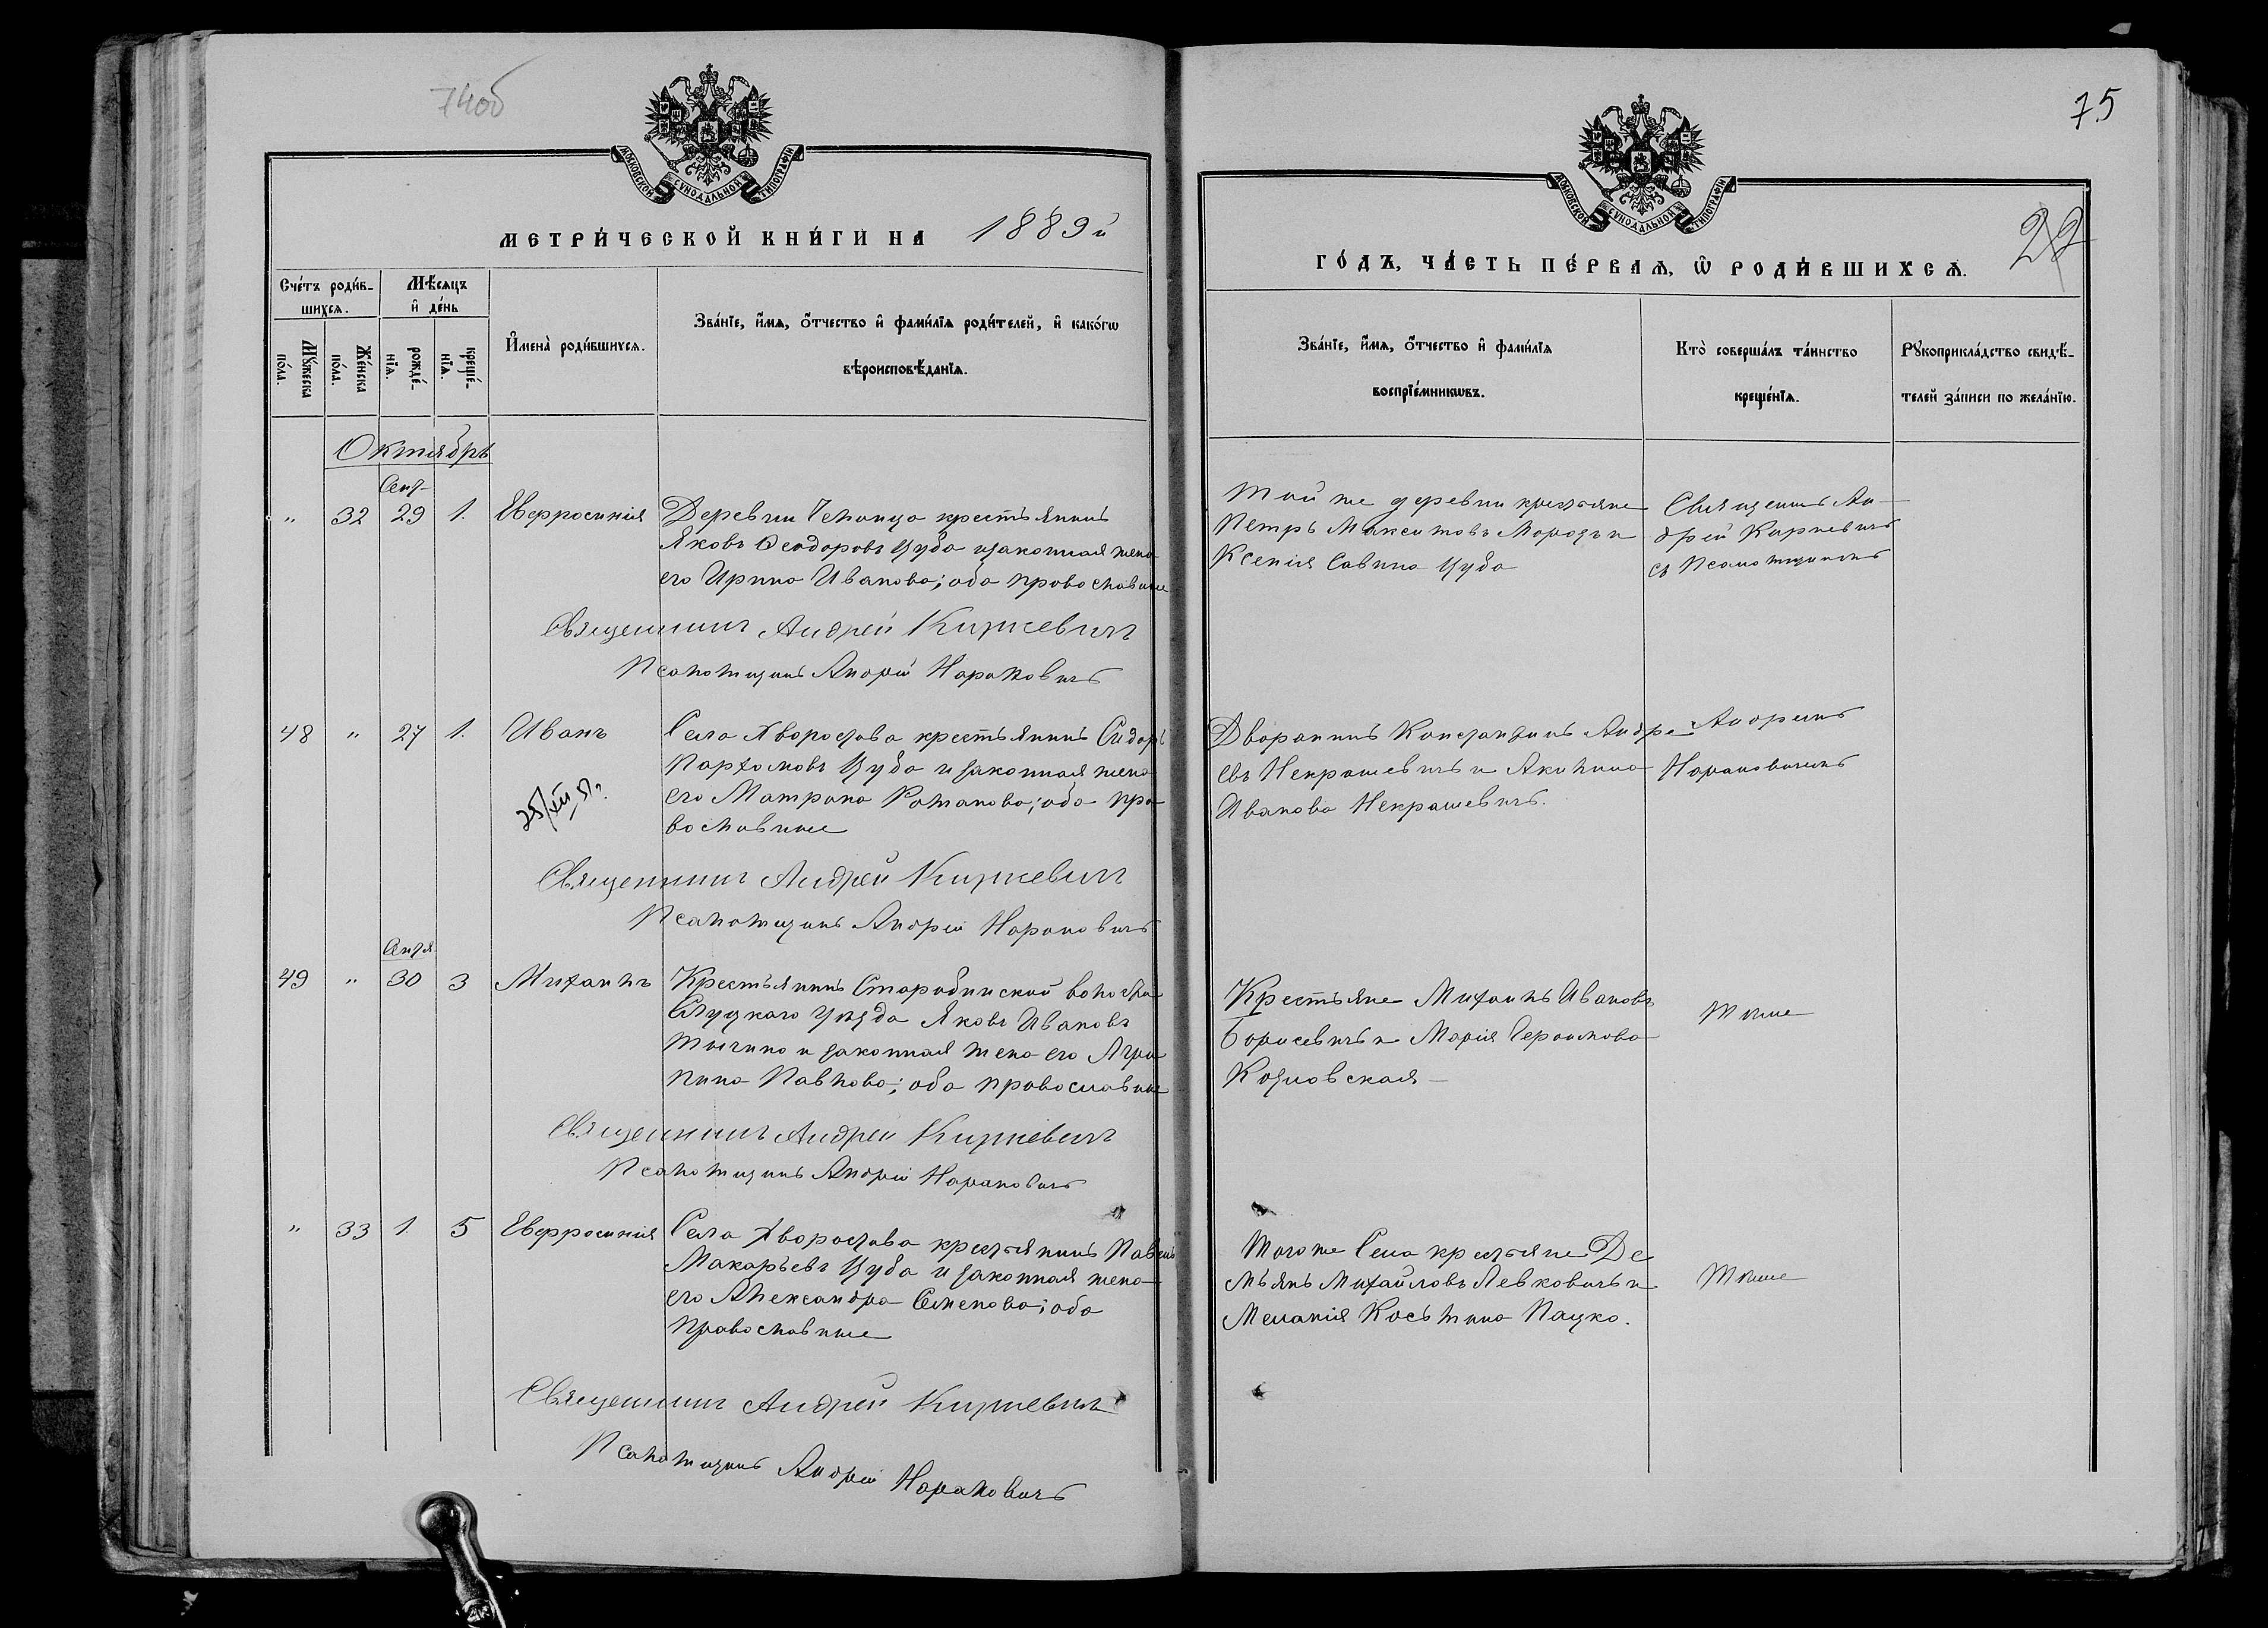 74об
МОСКОВСКОЙ СѴНОДАЛЬНОЙ ТИПОГРАФІИ
МЕТРИ́ЧЕСКОЙ КНИ́ГИ НА 1889й
Сче́тъ роди́в-
шихсѧ.
Мѣ́сѧцъ
и҆ де́нь
Мꙋ́жеска
по́ла.
Же́нска
по́ла.
рожде́-
нїѧ.
креще́-
нїѧ.
И҆мена̀ роди́вшихсѧ.
Зва́нїе, и҆́мѧ, ѻ҆́тчество и҆ фами́лїѧ роди́телей, и҆ како́гѡ
вѣроисповѣ́данїѧ.
Октябрь
Сент-
" 32 29 1. Евфросинія Деревни крестьянинъ
Яковъ Ѳеодоровъ Цуба и законная жена
его Ирина Иванова; оба православные
Священникъ Андрей Киркевичъ
Псаломщикъ Андрей
48 " 27 1. Иванъ Села Хворостова крестьянинъ Сидоръ
Парѳомовъ Цуба и законная жена
его Матрона Романова; оба пра-
вославные
25/XII 51г.
Священникъ Андрей Киркевичъ
Псаломщикъ Андрей
Сентя
49 " 30 3 Михаилъ Крестьянинъ Старобинской волости
Слуцкаго Уѣзда Яковъ Ивановъ
и законная жена его Агри-
пина Павлова; оба православные
Священникъ Андрей Киркевичъ
Псаломщикъ Андрей
" 33 1. 5 Евфросинія Села Хворостова крестьянинъ Павелъ
Макарьевъ Цуба и законная жена
его Александра Семенова; оба
православные
Священникъ Андрей Киркевичъ
Псаломщикъ Андрей
75
МОСКОВСКОЙ СѴНОДАЛЬНОЙ ТИПОГРАФІИ
22
ГО́ДЪ, ЧА́СТЬ ПЕ́РВАѦ, Ѡ҆ РОДИ́ВШИХСѦ.
Зва́нїе, и҆́мѧ, ѻ҆́тчество и҆ фами́лїѧ
воспрїе́мникѡвъ.
Кто̀ соверша́лъ та́инство
креще́нїѧ.
Рꙋкоприкла́дство свидѣ́-
телей за́писи по жела́нїю.
Той же деревни крестьяне
Петръ Максимовъ Мородъ и
Ксенія Савина Цуба
Священникъ Ан-
дрей Киркевичъ
съ Псаломщикомъ
Дворянинъ Константинъ Андре-
евъ Некрашевичъ и Акилина
Иванова Некрашевичъ.
Андреемъ
Крестьяне Михаилъ Ивановъ
Борисевичъ и Марія Герасимова
Козловская
Тѣже
Тогоже Села крестьяне Де-
мьянъ Михайловъ Левковичъ и
Меланія Косьмина Пацко.
Тѣже